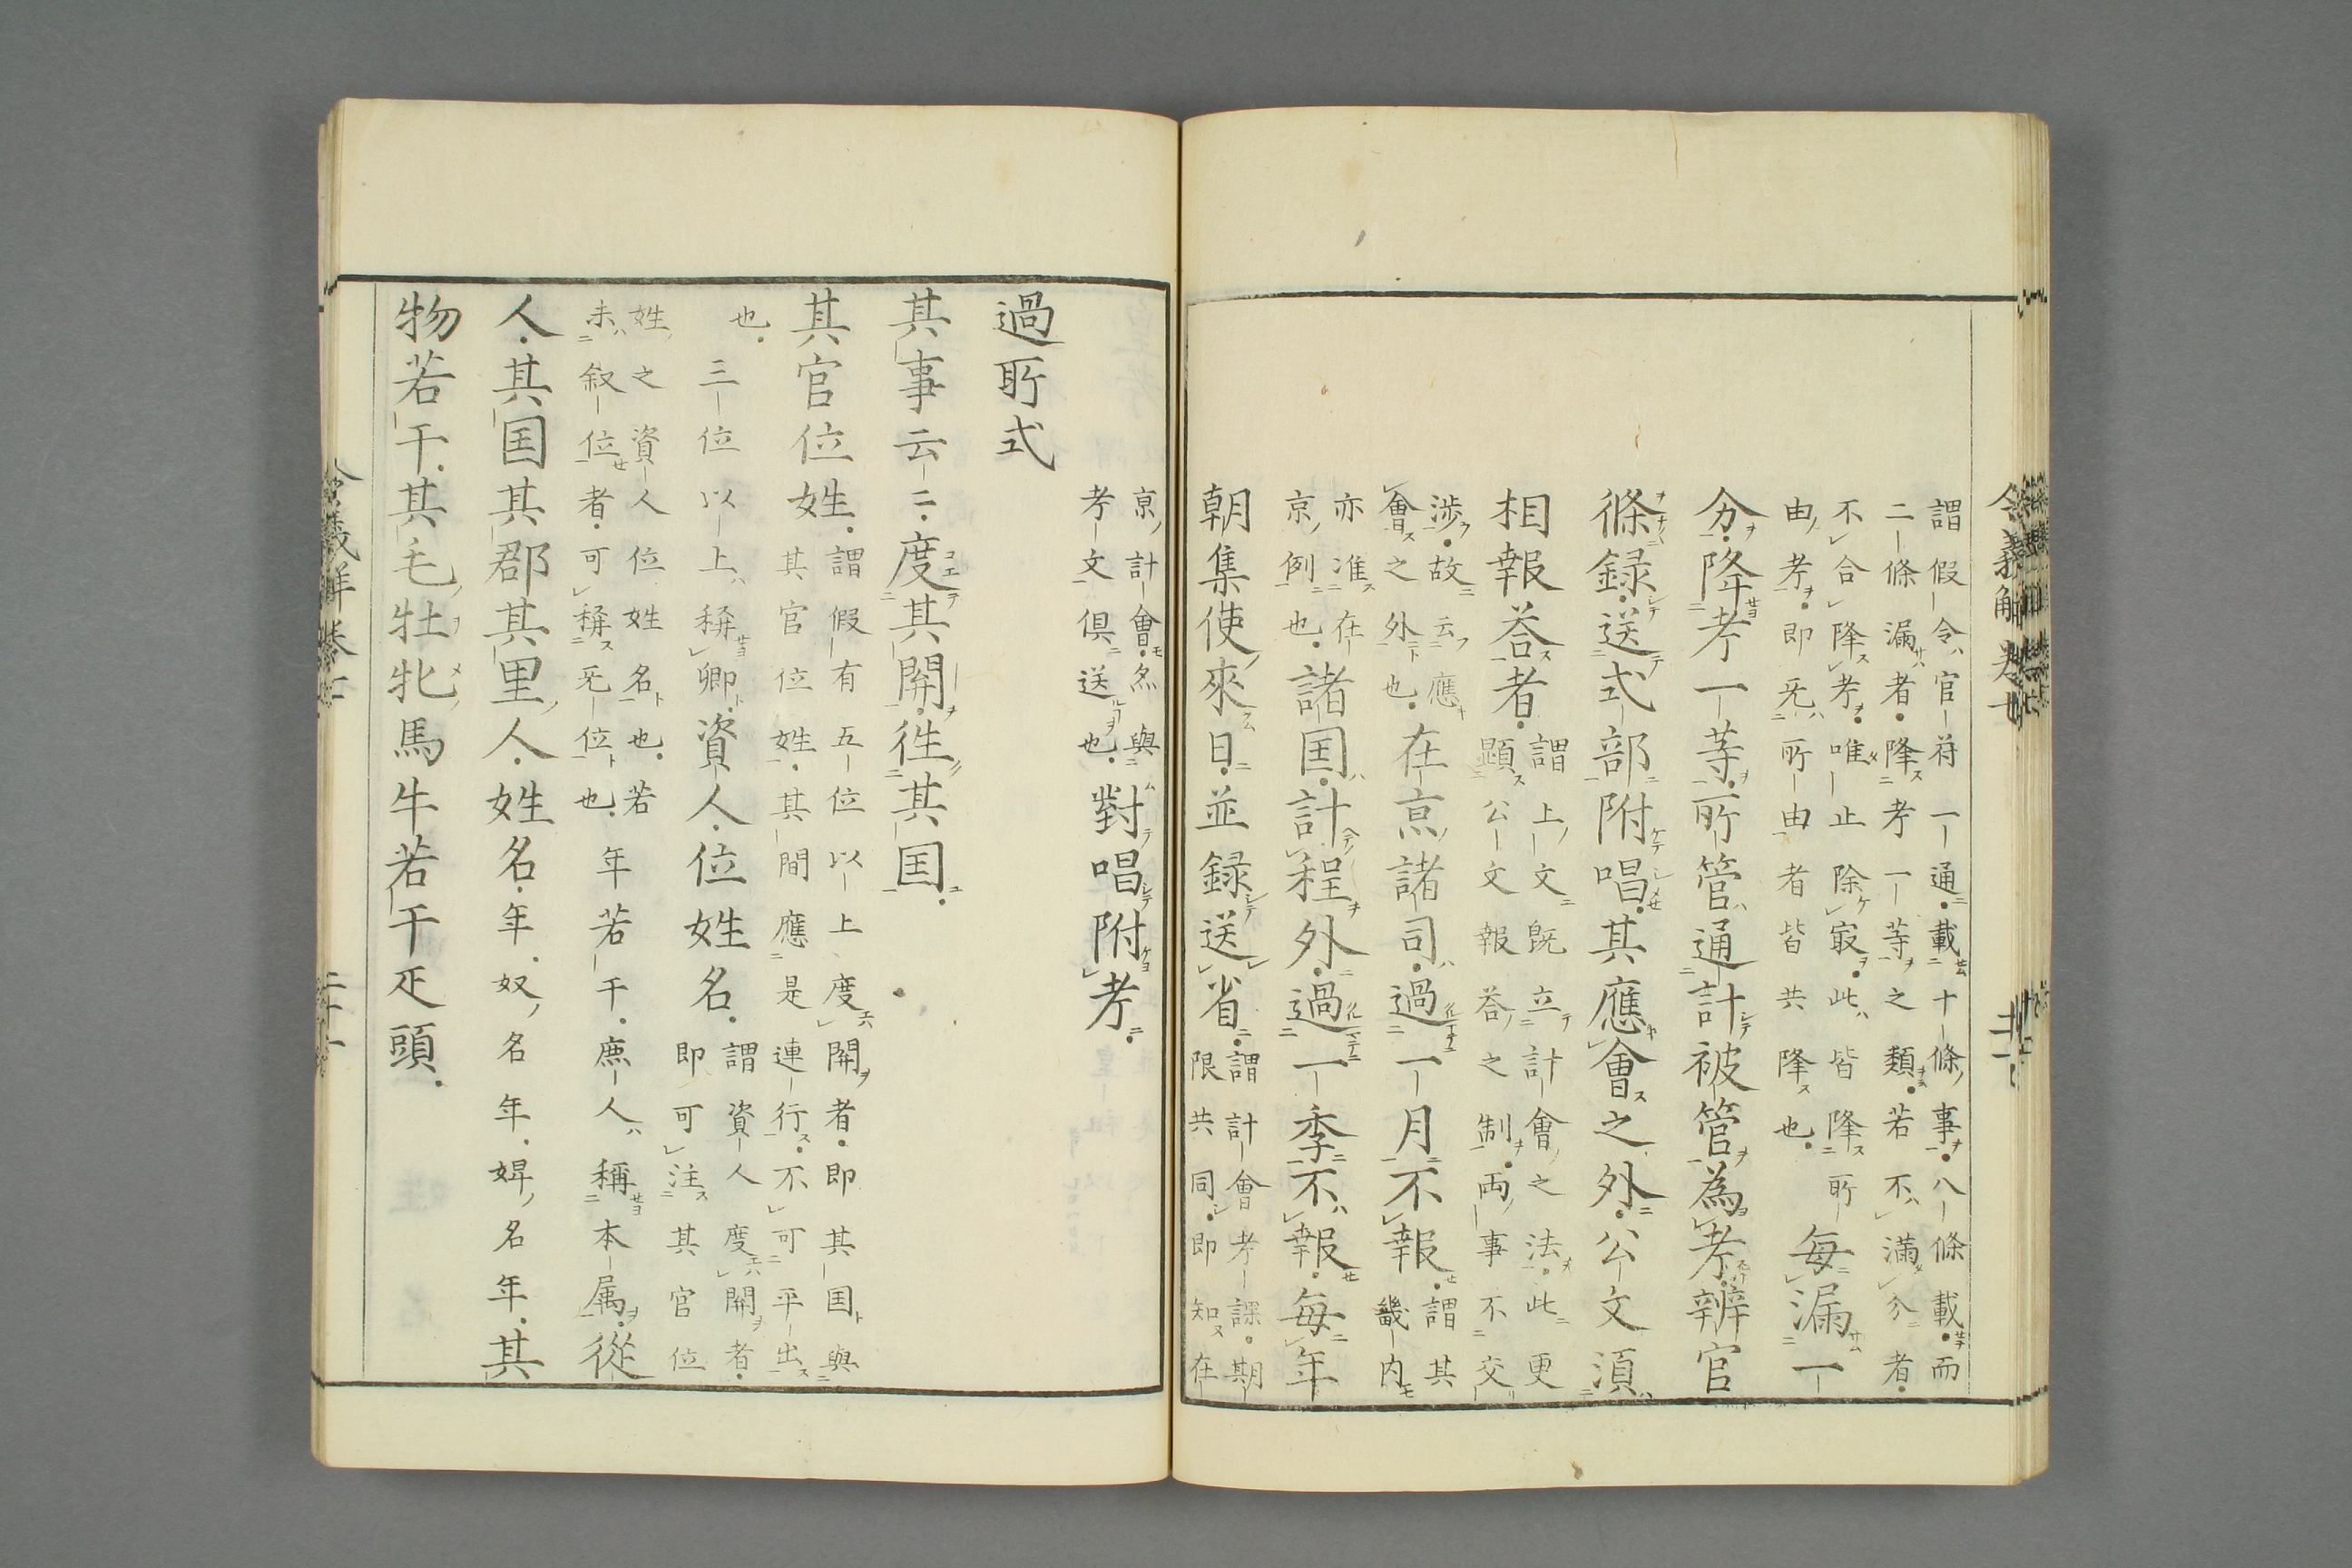 謂假令官符一通載十條事八條載而
二條漏者降考一等之類若不滿分者
不合降考唯止除冣此皆降所
由考即旡所由者皆共降也
每漏一
分降考一等所管通計被管為考辨官
條録送式部附唱其應會之外公文湏
相報荅者
謂上文既立計會之法此更
顕公文報荅之制両事不交
渉故云應
會之外也
在京諸司過一月不報
謂其
畿内
亦准在
京例也
諸国計程外過一季不報每年
朝集使來日並録送省
謂計會考課期
限共同即知在
京計會烝與
考文俱送也
對唱附考
過所式
其事云〻度其關徃其国
其官位姓
謂假有五位以上度關者即其国與
其官位姓其間應是連行不可平出
也
三位以上稱卿資人位姓名
謂資人度關者
即可注其官位
姓之資人位姓名也若
未叙位者可稱旡位也
年若干庶人稱本属從
人其国其郡其里人姓名年奴名年婢名年其
物若干其毛牡牝馬牛若干疋頭
令義解卷七